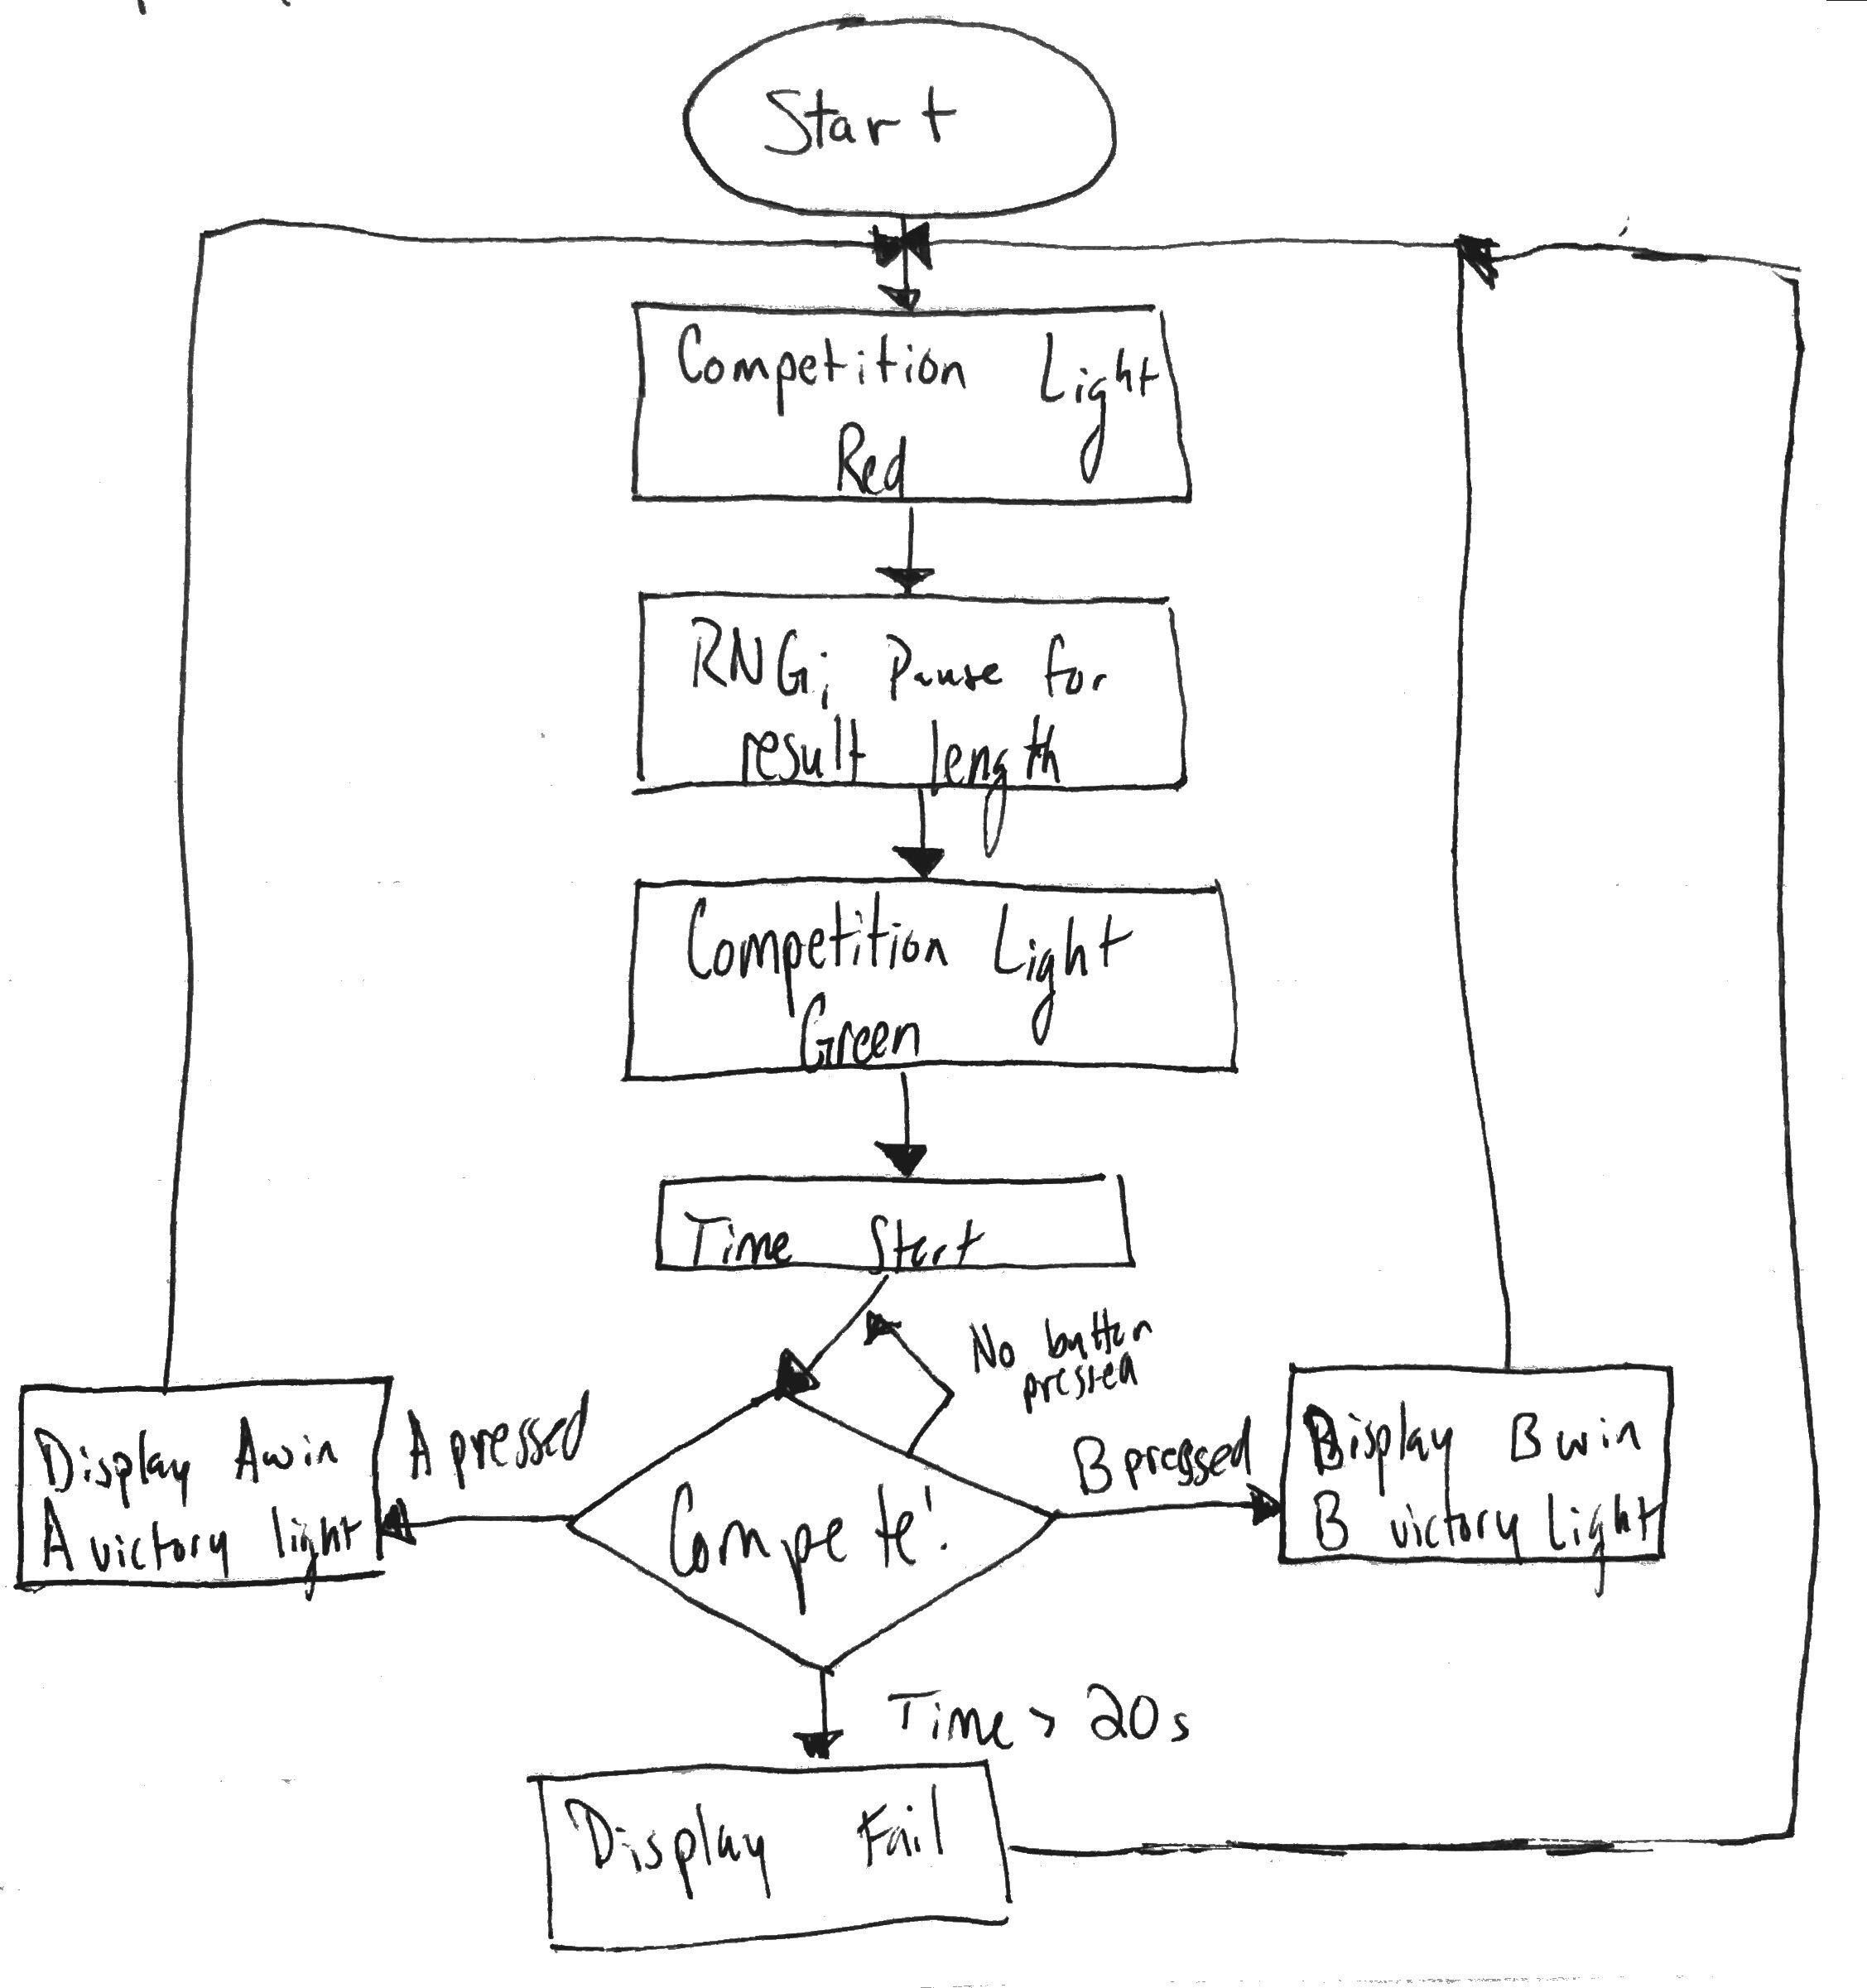 Start
Competition Light
Red
RNG; Pause for
result length
Competition Light
Green
Time Start
No button
pressed
Display A win
A victory light
A pressed
Compete!
B pressed
Display B win
B victory light
Time > 20s
Display Fail